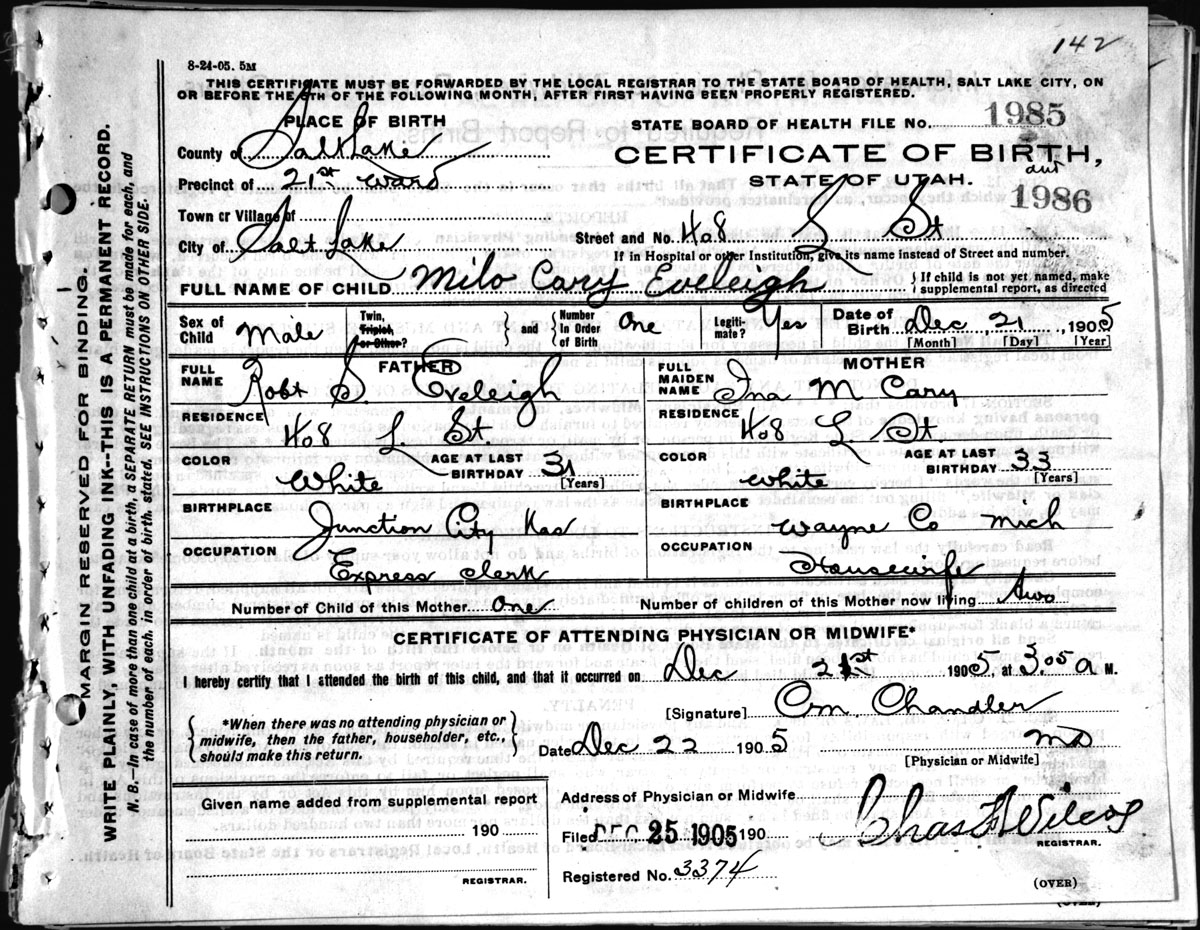 142
8-24-05. 5M
THIS CERTIFICATE MUST BE FORWARDED BY THE LOCAL REGISTRAR TO THE STATE BOARD OF HEALTH, SALT LAKE CITY, ON
OR BEFORE THE 5TH OF THE FOLLOWING MONTH, AFTER FIRST HAVING BEEN PROPERLY REGISTERED.
PLACE OF BIRTH
STATE BOARD OF HEALTH FILE No. 1985
County of Salt Lake
CERTIFICATE OF BIRTH,
and
Precinct of 21st Ward
STATE OF UTAH.
1986
Town or Village of
City of Salt Lake
Street and No. 408 L St
If in Hospital or other Institution, give its name instead of Street and number.
FULL NAME OF CHILD Milo Cary Eveleigh
{If child is not yet named, make
supplemental report, as directed
Sex of Child Male
Twin, Triplet, or Other?
} and {
Number in Order of Birth One
Legitimate? Yes
Date of Birth Dec 21 1905
[Month] [Day] [Year]
FATHER
FULL NAME Robt S. Eveleigh
RESIDENCE 408 L. St.
COLOR White
AGE AT LAST BIRTHDAY 31
[Years]
BIRTHPLACE Junction City Kas
OCCUPATION Express Clerk
MOTHER
FULL MAIDEN NAME Ina M Cary
RESIDENCE 408 L St
COLOR White
AGE AT LAST BIRTHDAY 33
[Years]
BIRTHPLACE Wayne Co Mich
OCCUPATION Housewife
Number of Child of this Mother One
Number of children of this Mother now living Two
CERTIFICATE OF ATTENDING PHYSICIAN OR MIDWIFE*
I hereby certify that I attended the birth of this child, and that it occurred on Dec 21st 1905, at 3.05 a M.
{*When there was no attending physician or
midwife, then the father, householder, etc.,
should make this return.}
[Signature] C.M. Chandler
Date Dec 22 1905 MD
[Physician or Midwife]
Given name added from supplemental report
190
REGISTRAR.
Address of Physician or Midwife
Filed DEC 25 1905 190 Chas F Wilcox
REGISTRAR.
Registered No. 3374
(OVER)
(OVER)
MARGIN RESERVED FOR BINDING
WRITE PLAINLY, WITH UNFADING INK--THIS IS A PERMANENT RECORD.
N. B.—In case of more than one child at a birth, a SEPARATE RETURN must be made for each, and
the number of each, in order of birth, stated. SEE INSTRUCTIONS ON OTHER SIDE.